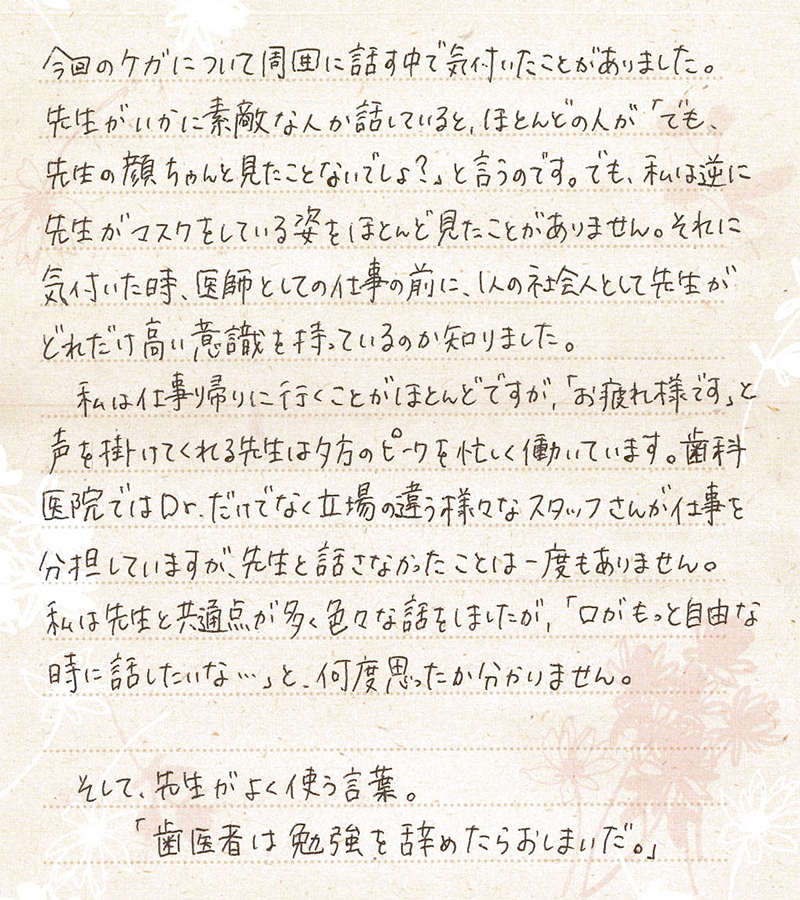 今回のケガについて周囲に話す中で気付いたことがありました。
先生がいかに素敵な人か話していると、ほとんどの人が「でも、
先生の顔ちゃんと見たことないでしょ?」と言うのです。でも、私は逆に
先生がマスクをしている姿をほとんど見たことがありません。それに
気付いた時、医師としての仕事の前に、1人の社会人として先生が
どれだけ高い意識を持っているのか知りました。
私は仕事帰りに行くことがほとんどですが、「お疲れ様です」と
声を掛けてくれる先生は夕方のピークを忙しく働いています。歯科
医院ではDr.だけでなく立場の違う様々なスタッフさんが仕事を
分担していますが、先生と話さなかったことは一度もありません。
私は先生と共通点が多く色々な話をしましたが、「口がもっと自由な
時に話したいな…」と、何度思ったか分かりません。
そして、先生がよく使う言葉。
「歯医者は勉強を辞めたらおしまいだ。」